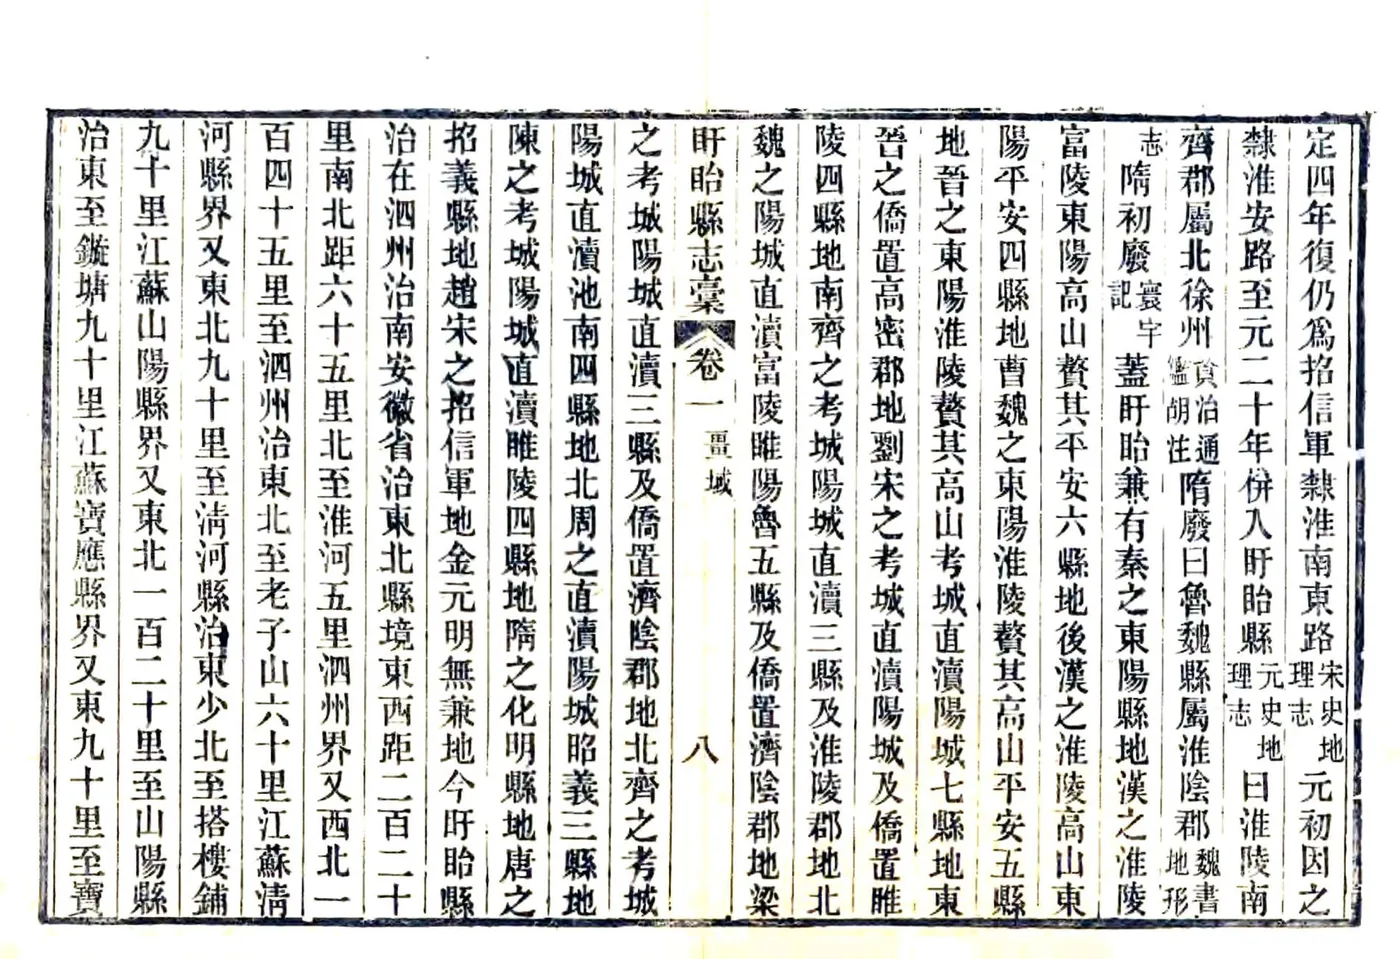 定四年復仍爲招信軍隸淮南東路宋史地理志元初因之
隸淮安路至元二十年併入盱眙縣元史地理志曰淮陵南
齊郡屬北徐州資治通鑑胡注隋廢曰魯魏縣屬淮陰郡魏書地形
志隋初廢寰宇記蓋盱眙兼有秦之東陽縣地漢之淮陵
富陵東陽高山贅其平安六縣地後漢之淮陵高山東
陽平安四縣地曹魏之東陽淮陵贅其高山平安五縣
地晉之東陽淮陵贅其高山考城直瀆陽城七縣地東
晉之僑置高密郡地劉宋之考城直瀆陽城及僑置睢
陵四縣地南齊之考城陽城直瀆三縣及淮陵郡地北
魏之陽城直瀆富陵睢陽魯五縣及僑置濟陰郡地梁
盱眙縣志稾 卷一 畺域 八
之考城陽城直瀆三縣及僑置濟陰郡地北齊之考城
陽城直瀆池南四縣地北周之直瀆陽城昭義三縣地
陳之考城陽城直瀆睢陵四縣地隋之化明縣地唐之
招義縣地趙宋之招信軍地金元明無兼地今盱眙縣
治在泗州治南安徽省治東北縣境東西距二百二十
里南北距六十五里北至淮河五里泗州界又西北一
百四十五里至泗州治東北至老子山六十里江蘇淸
河縣界又東北九十里至淸河縣治東少北至搭樓鋪
九十里江蘇山陽縣界又東北一百二十里至山陽縣
治東至鏇塘九十里江蘇寶應縣界又東九十里至寶